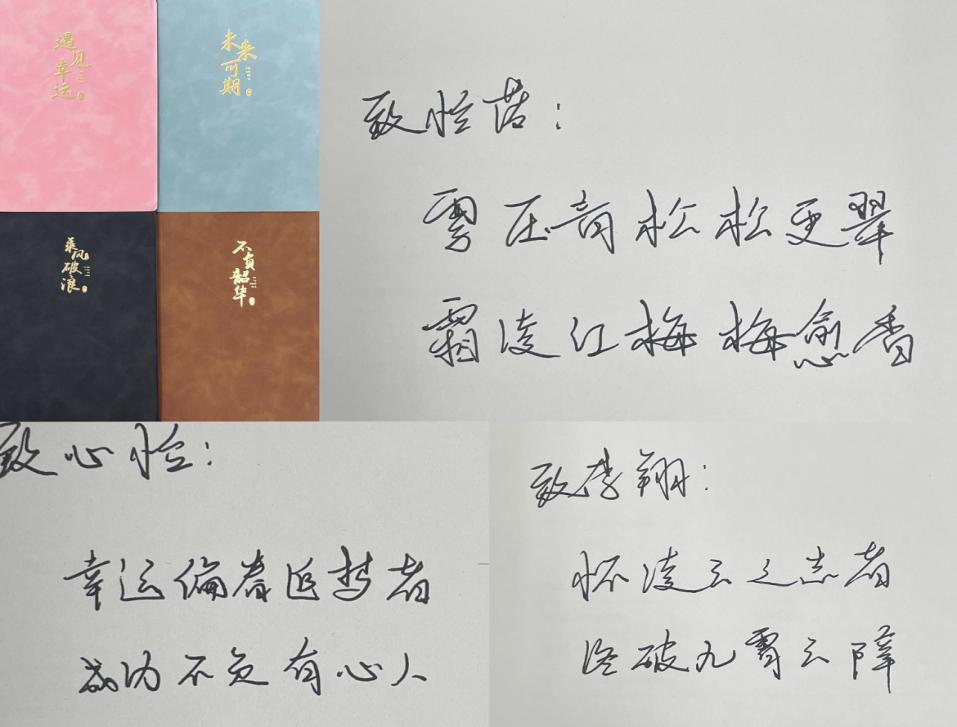 遇见幸运
未来可期
乘风破浪
不负韶华
致忆诺：
雪压青松松更翠
霜凌红梅梅愈香
致心怡：
幸运偏眷追梦者
成功不负有心人
致李翔：
怀凌云之志者
终破九霄云障